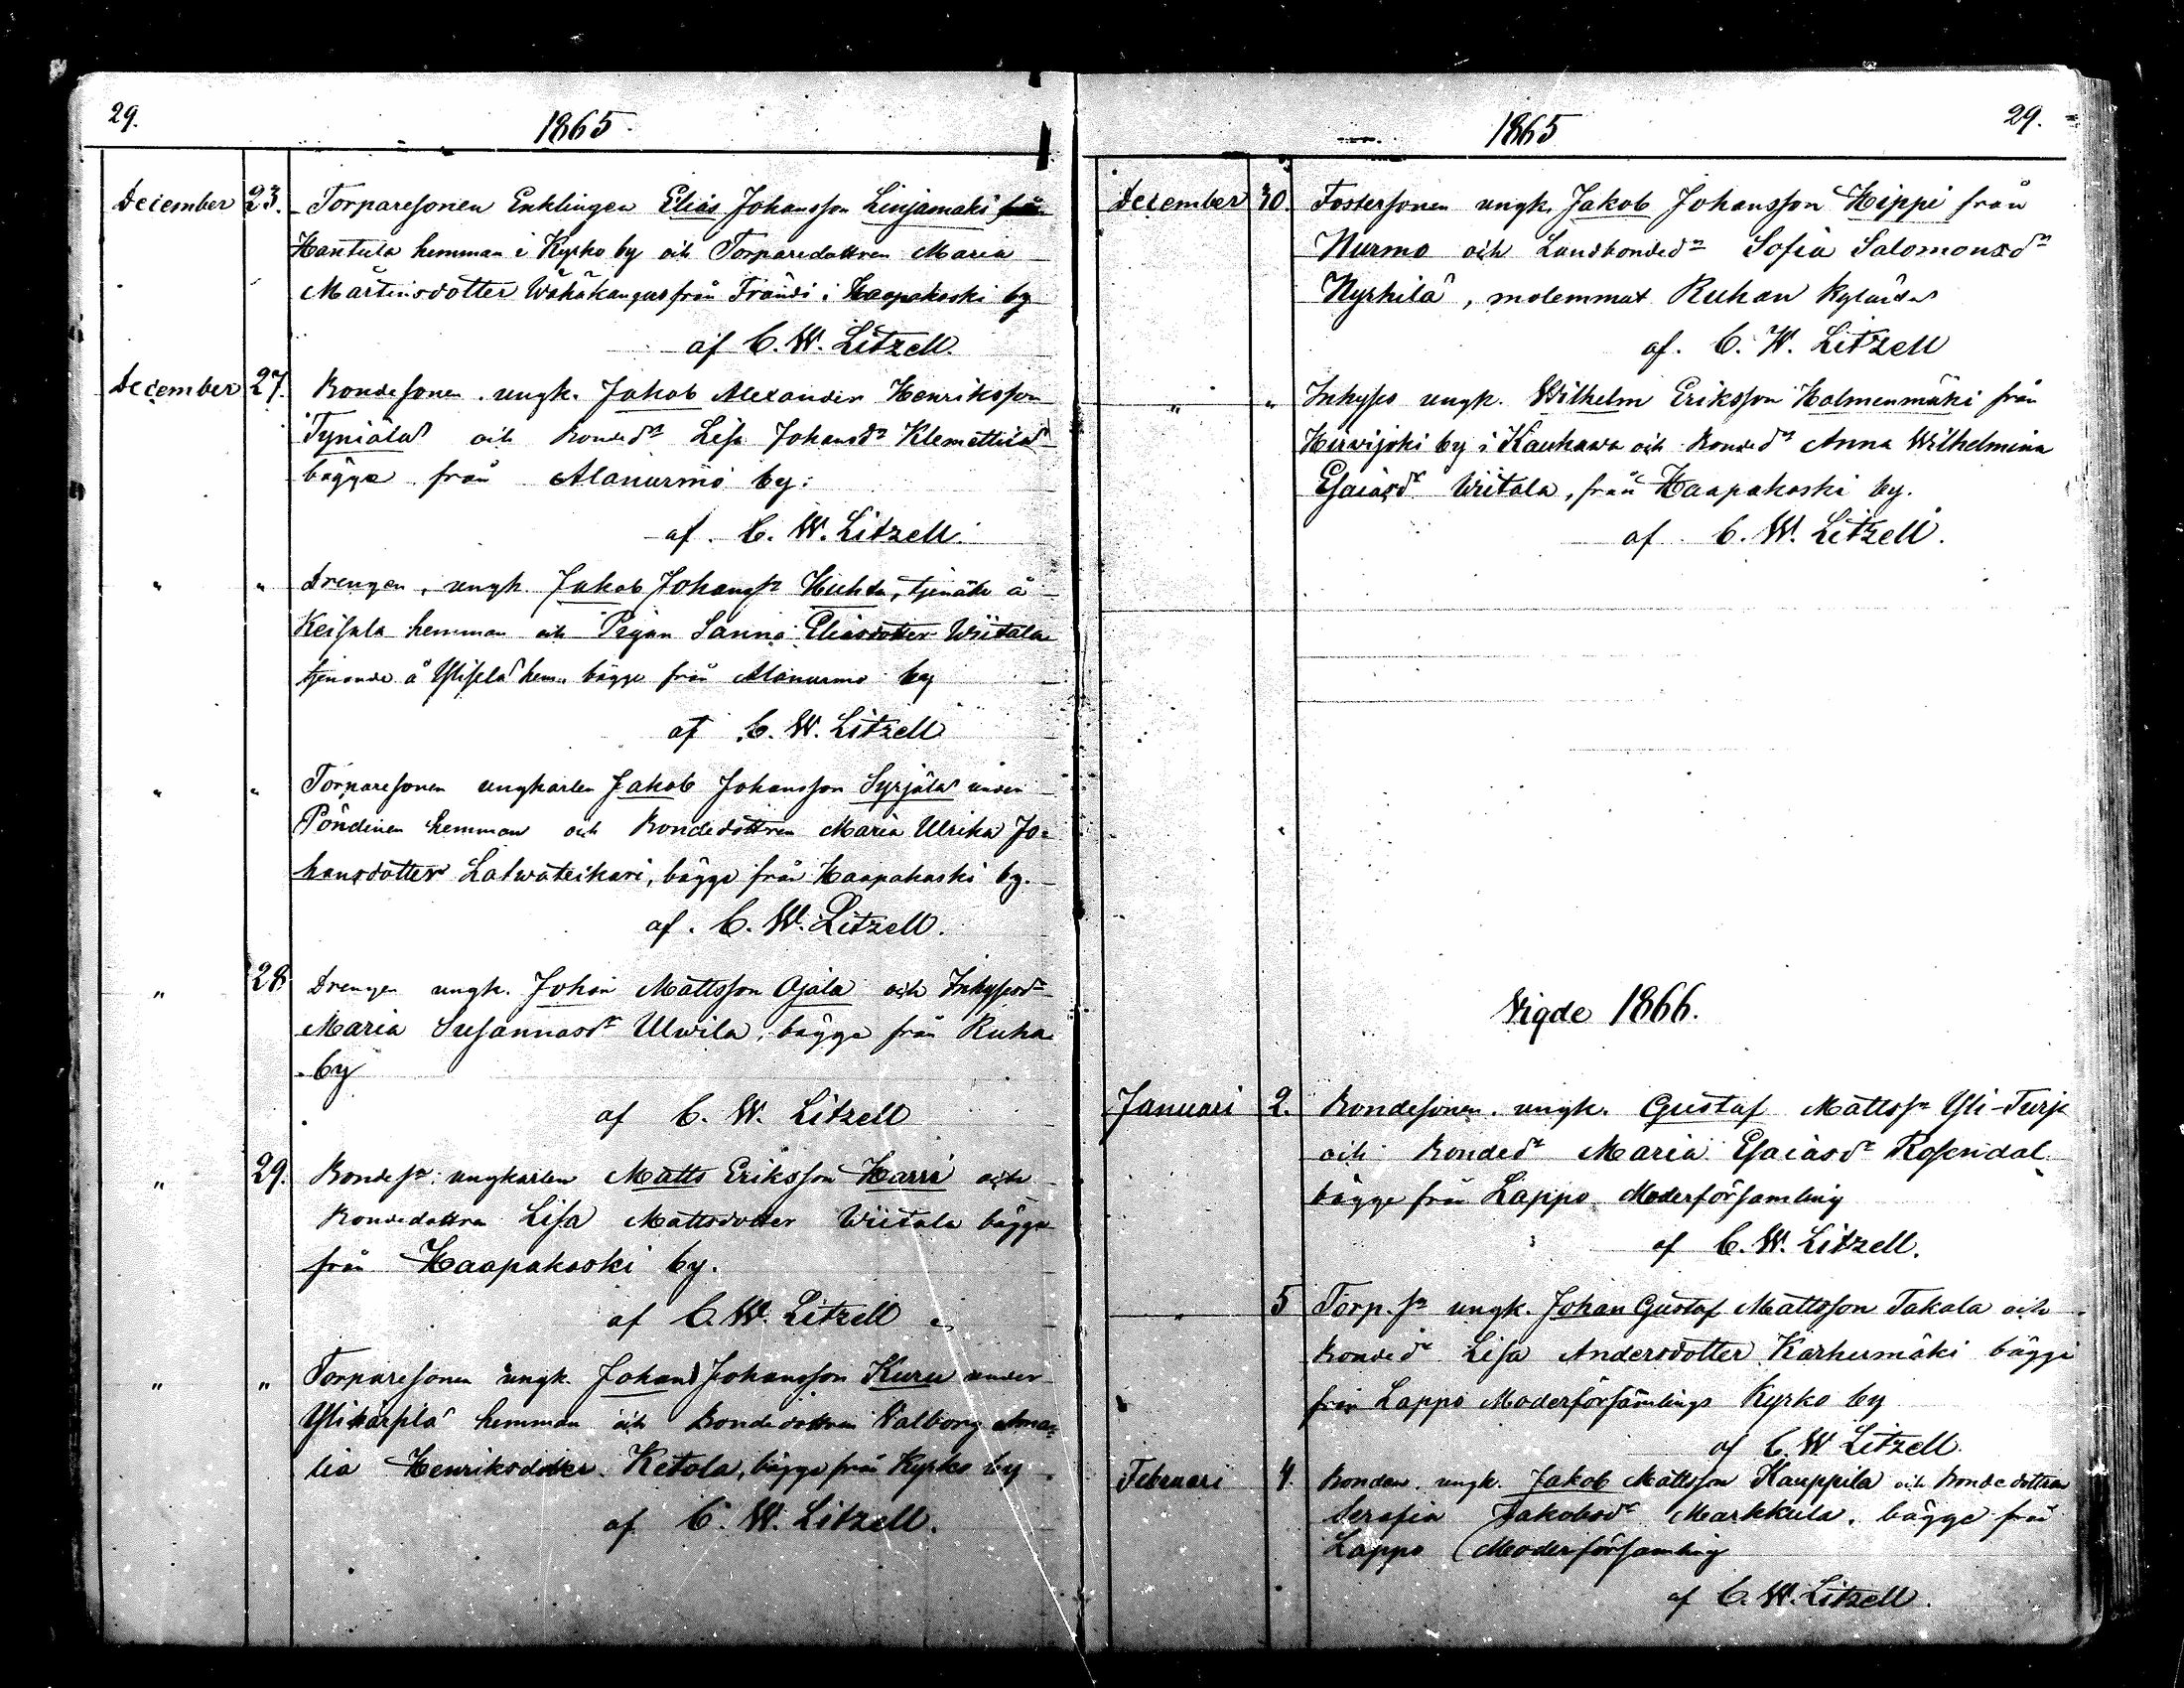 29.
1865
December 23. Torparesonen Enklingen Elias Johansson Linjamäki från
Hantula hemman i Kyrko by och Torparedottren Maria
Mårtensdotter Wähäkangas från Frändi i Haapakoski by
af C. W. Litzell.
December 27. Bondesonen ungk. Jakob Alexander Henriksson
Tyniälä och Bonded:r Lisa Johansd:r Klemettilä
bägge från Alanurmo by:
af. C. W. Litzell.
" " Drengen, ungk. Jakob Johanss:n Huhta, tjenande å
Keisala hemman och Pigan Sanna Eliasdotter Wiitala
tjenande å Ylisela hem. bägge från Alanurmo by
af C. W. Litzell
" " Torparesonen ungkarlen Jakob Johansson Syrjälä under
Pöndinen hemman och Bondedottren Maria Ulrika Jo=
hansdotter Latwateikari, bägge från Haapakoski by.
af. C. W. Litzell.
" 28. Drengen ungk. Johan Mattsson Ojala och Inhysesd:r
Maria Susannasd:r Ulwila, bägge från Ruha
by
af C. W. Litzell
" 29. Bondes:n ungkarlen Matts Eriksson Harri och
Bondedottren Lisa Mattsdotter Wiitala bägge
från Haapakoski by.
af C. W. Litzell
" " Torparesonen ungk. Johan Johansson Kuru under
Ylikärplä hemman och Bondedottren Walborg Ama=
lia Henriksdotter Ketola, bägge från Kyrko by
af C. W. Litzell.
1865
29.
December 30. Fostersonen ungk. Jakob Johansson Hippi från
Nurmo och Landbonded:r Sofia Salomonsd:r
Nyrhilä, molemmat Ruhan kylästä
af. C. W. Litzell
" " Inhyses ungk. Wilhelm Eriksson Holmenmäki från
Hirwijoki by i Kauhawa och Bonded:r Anna Wilhelmina
Esaiasd:r Wiitala, från Haapakoski by.
af C. W. Litzell.
Vigde 1866.
Januari 2. Bondesonen ungk. Gustaf Mattss:n Yli-Turja
och Bonded:r Maria Esaiasd:r Rosendal
bägge från Lappo Moderförsamling
af C. W. Litzell.
" 5 Torp. s:n ungk. Johan Gustaf Mattsson Takala och
Bonded:r Lisa Andersdotter Karhumäki bägge
från Lappo Moderförsamlings Kyrko by
af C. W. Litzell.
Februari 4. Bonden ungk. Jakob Mattsson Kauppila och Bondedottren
Serafia Jakobsd:r Markkula, bägge från
Lappo Moderförsamling
af C. W. Litzell.